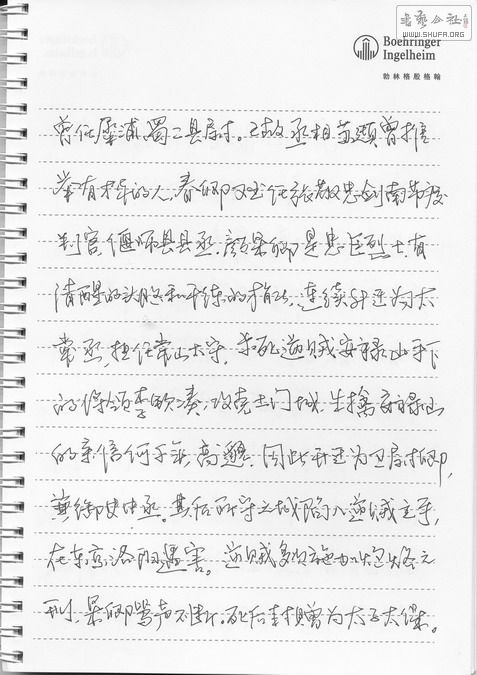 書艺公社
WWW.SHUFA.ORG
Boehringer
Ingelheim
勃林格殷格翰
曾任犀浦、蜀二县尉。已故丞相苏颋曾推
举有才的人,春卿又出任张敬忠剑南节度
判官,偃师县县丞。颜杲卿是忠臣烈士,有
清醒的头脑和干练的才能,连续升迁为太
常丞,担任常山太守,杀死逆贼安禄山手下
的将领李钦凑,攻克土门城,生擒安禄山
的亲信何千年、高邈,因此升迁为卫尉卿,
兼御史中丞。其后所守之城陷入逆贼之手,
在东京洛阳遇害。逆贼多次施加炮烙之
刑,杲卿骂声不断。死后封赠为太子太保。